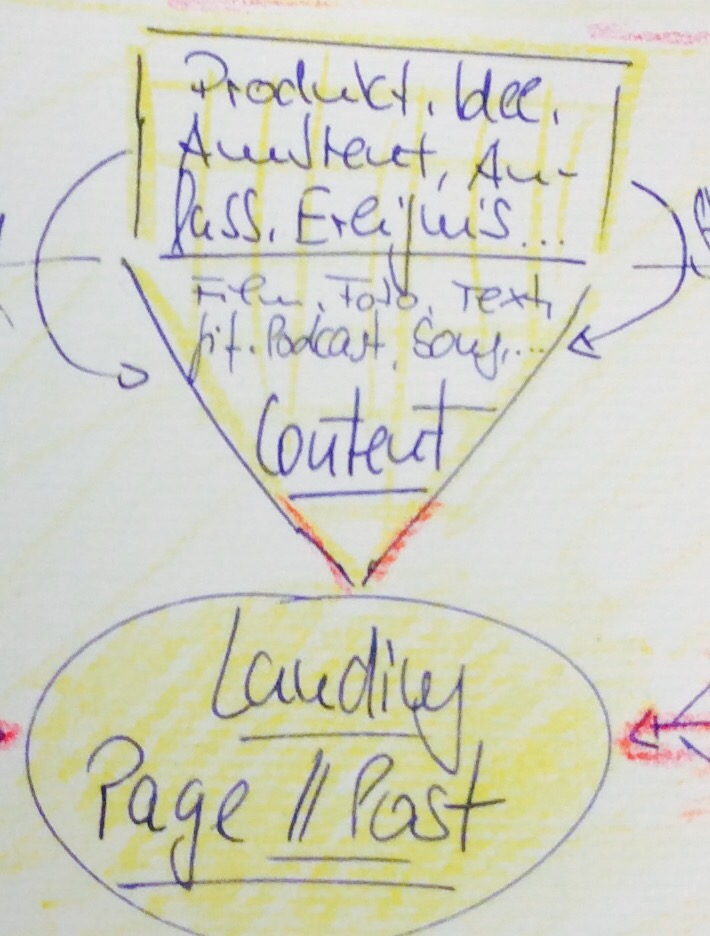 Produkt, Idee,
Amtsteut, An-
lass, Ereignis...
Film, Foto, Text,
Podcast, Song,...
Content
Landing
Page || Post